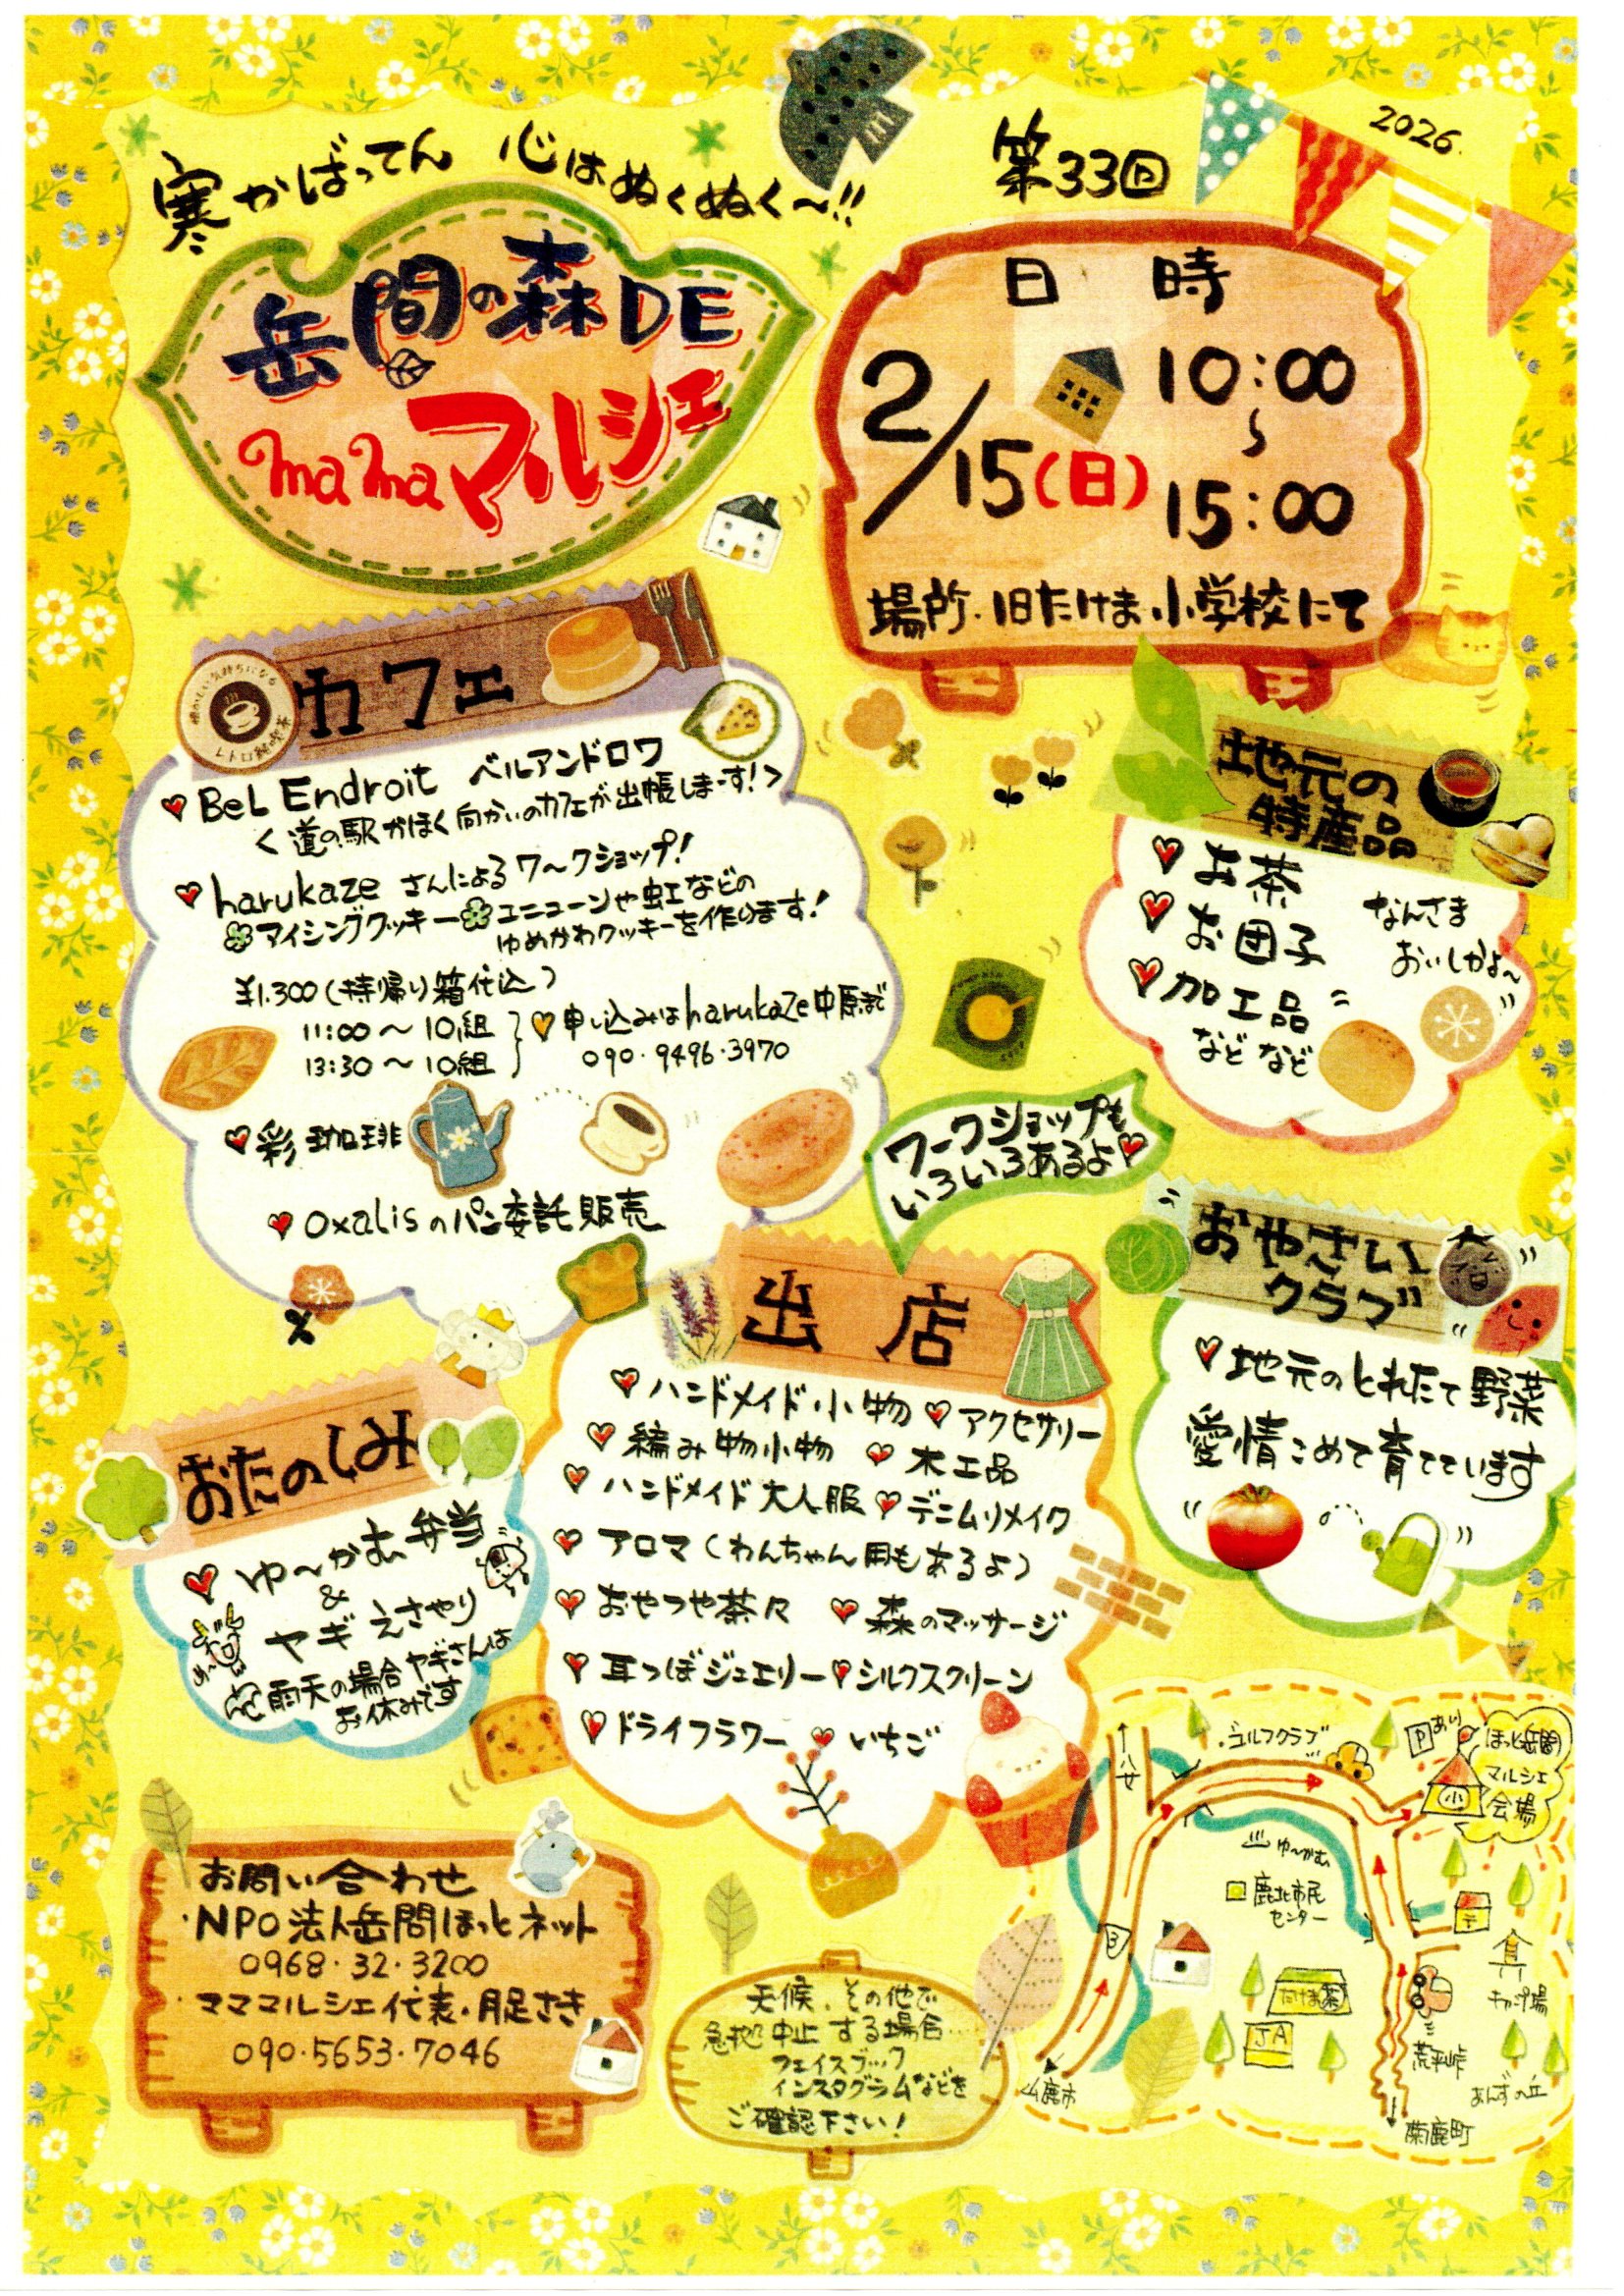 2026.
寒かばってん 心はぬくぬく〜!!
第33回
岳間の森DE
mamaマルシェ
日時
2/15(日)
10:00
〜
15:00
場所.旧たけま小学校にて
カフェ
懐かしい気持ちになる
レトロ純喫茶
BeL Endroit ベルアンドロワ
<道の駅かほく向かいのカフェが出張しまーす!>
harukaze さんによるワークショップ!
アイシングクッキー ユニコーンや虹などの
ゆめかわクッキーを作ります!
¥1.300(持帰り箱代込)
11:00〜10組
13:30〜10組
申し込みはharukaze中原まで
090・9496・3970
彩珈琲
oxalisのパン委託販売
地元の
特産品
お茶
お団子
加工品
などなど
なんさま
おいしかよ〜
ワークショップも
いろいろあるよ
おやさい
クラブ
地元のとれたて野菜
愛情こめて育てています
出店
ハンドメイド小物
アクセサリー
編み物小物
木工品
ハンドメイド大人服
デニムリメイク
アロマ(わんちゃん用もあるよ)
おやつや茶々
森のマッサージ
耳つぼジュエリー
シルクスクリーン
ドライフラワー
いちご
おたのしみ
ゆ〜かむ弁当
&
ヤギえさやり
め〜
雨天の場合ヤギさんは
お休みです
お問い合わせ
・NPO法人岳間ほっとネット
0968・32・3200
・マママルシェ代表・月足さき
090・5653・7046
天候、その他で
急拠中止する場合…
フェイスブック
インスタグラムなどを
ご確認下さい!
↑八女
・ゴルフクラブ
Pあり
ほっと岳間
マルシェ
会場
小
ゆ〜かむ
鹿北市民
センター
3
〒
たけま茶
JA
キャンプ場
荒平峠
あんずの丘
山鹿市
↓菊鹿町